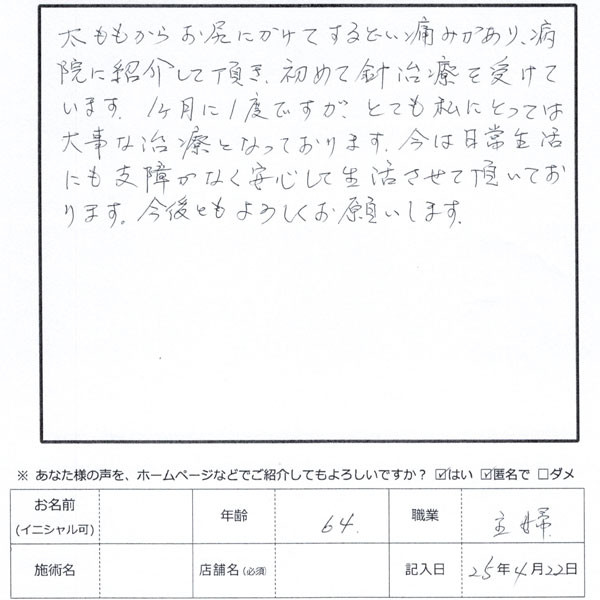 太ももからお尻にかけてするどい痛みがあり、病
院に紹介して頂き、初めて針治療を受けて
います。1ヶ月に1度ですが、とても私にとっては
大事な治療となっております。今は日常生活
にも支障がなく安心して生活させて頂いてお
ります。今後ともよろしくお願いします。
※ あなた様の声を、ホームページなどでご紹介してもよろしいですか？ ☑はい ☑匿名で □ダメ
お名前 年齢 64. 職業 主婦
(イニシャル可)
施術名 店舗名(必須) 記入日 25年4月22日